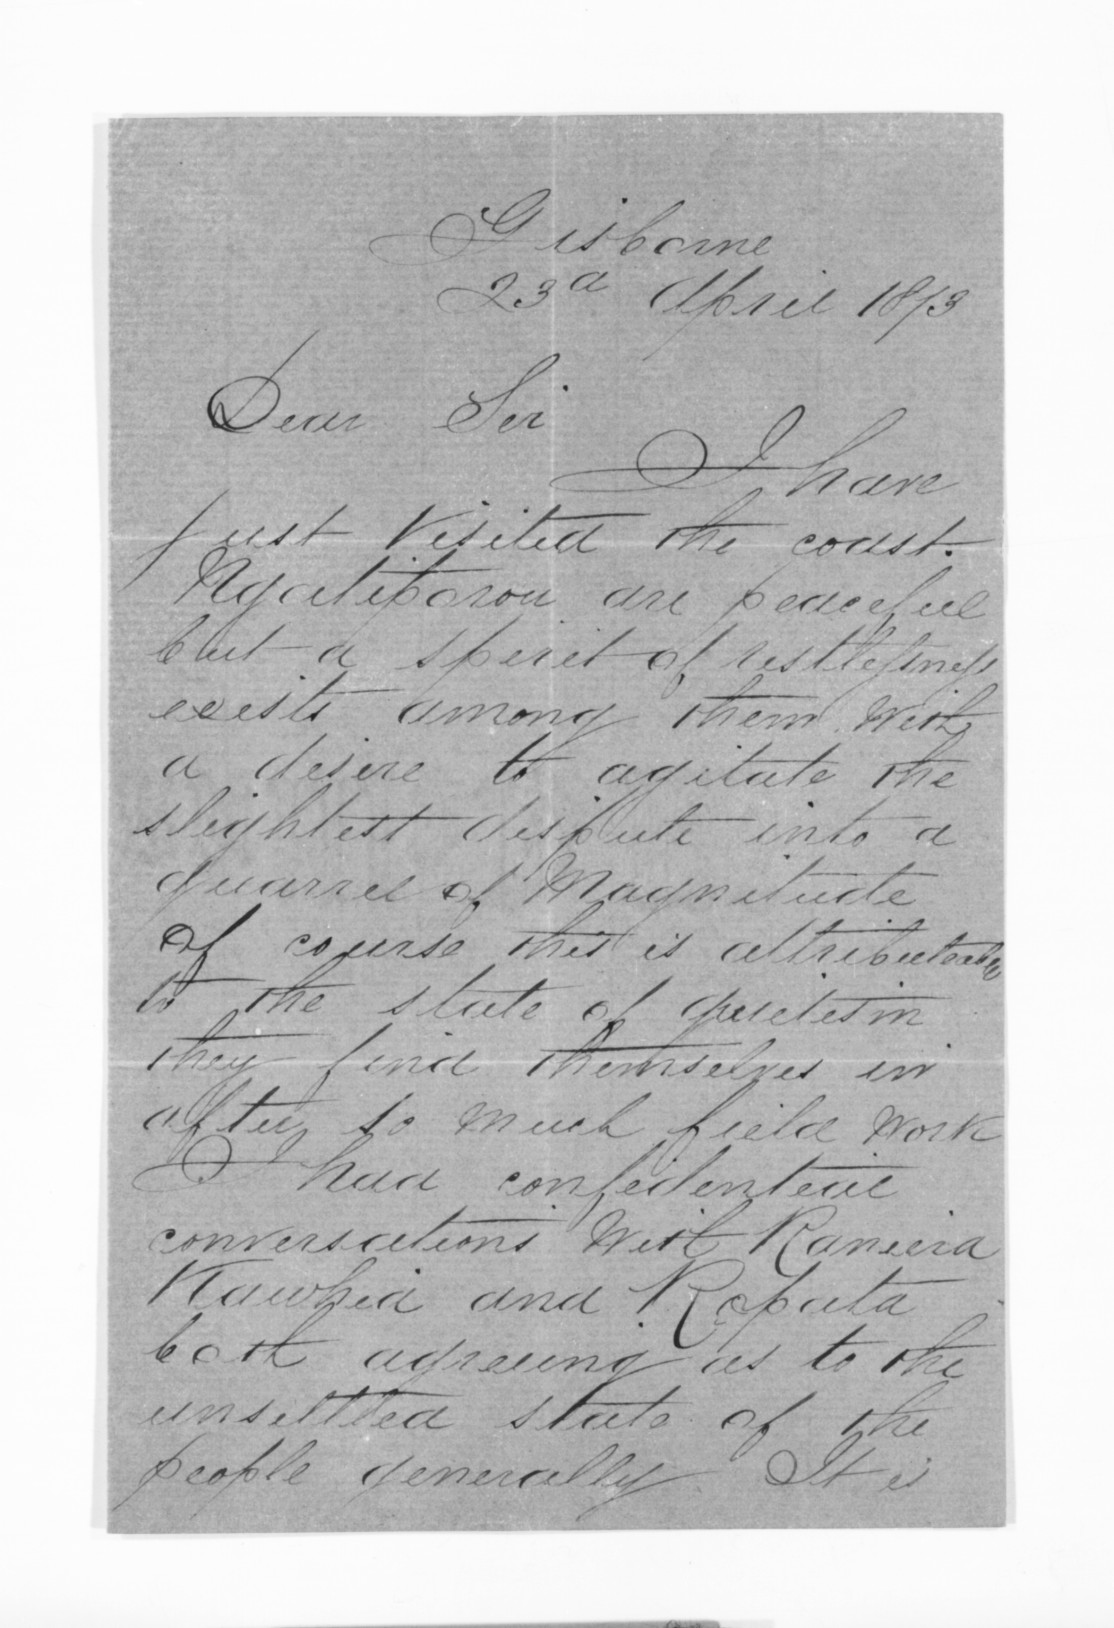 Gisborne
23d April 1873
Dear Sir
I have
just visited the coast.
Ngatiporou are peaceful
but a spirit of restlessness
exists among them with
a desire to agitate the
slightest dispute into a
quarrel of Magnitude
Of course this is attributeable
to the state of quietism
they find themselves in
after so much field work
I had confidential
conversations with Raniera
Kawhia and Ropata
both agreeing as to the
unsettled state of the
people generally It is